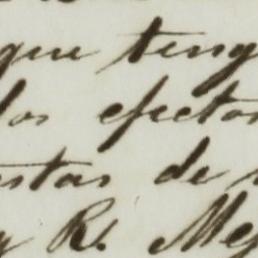 que teng
los efectos
estas de
y R. Me